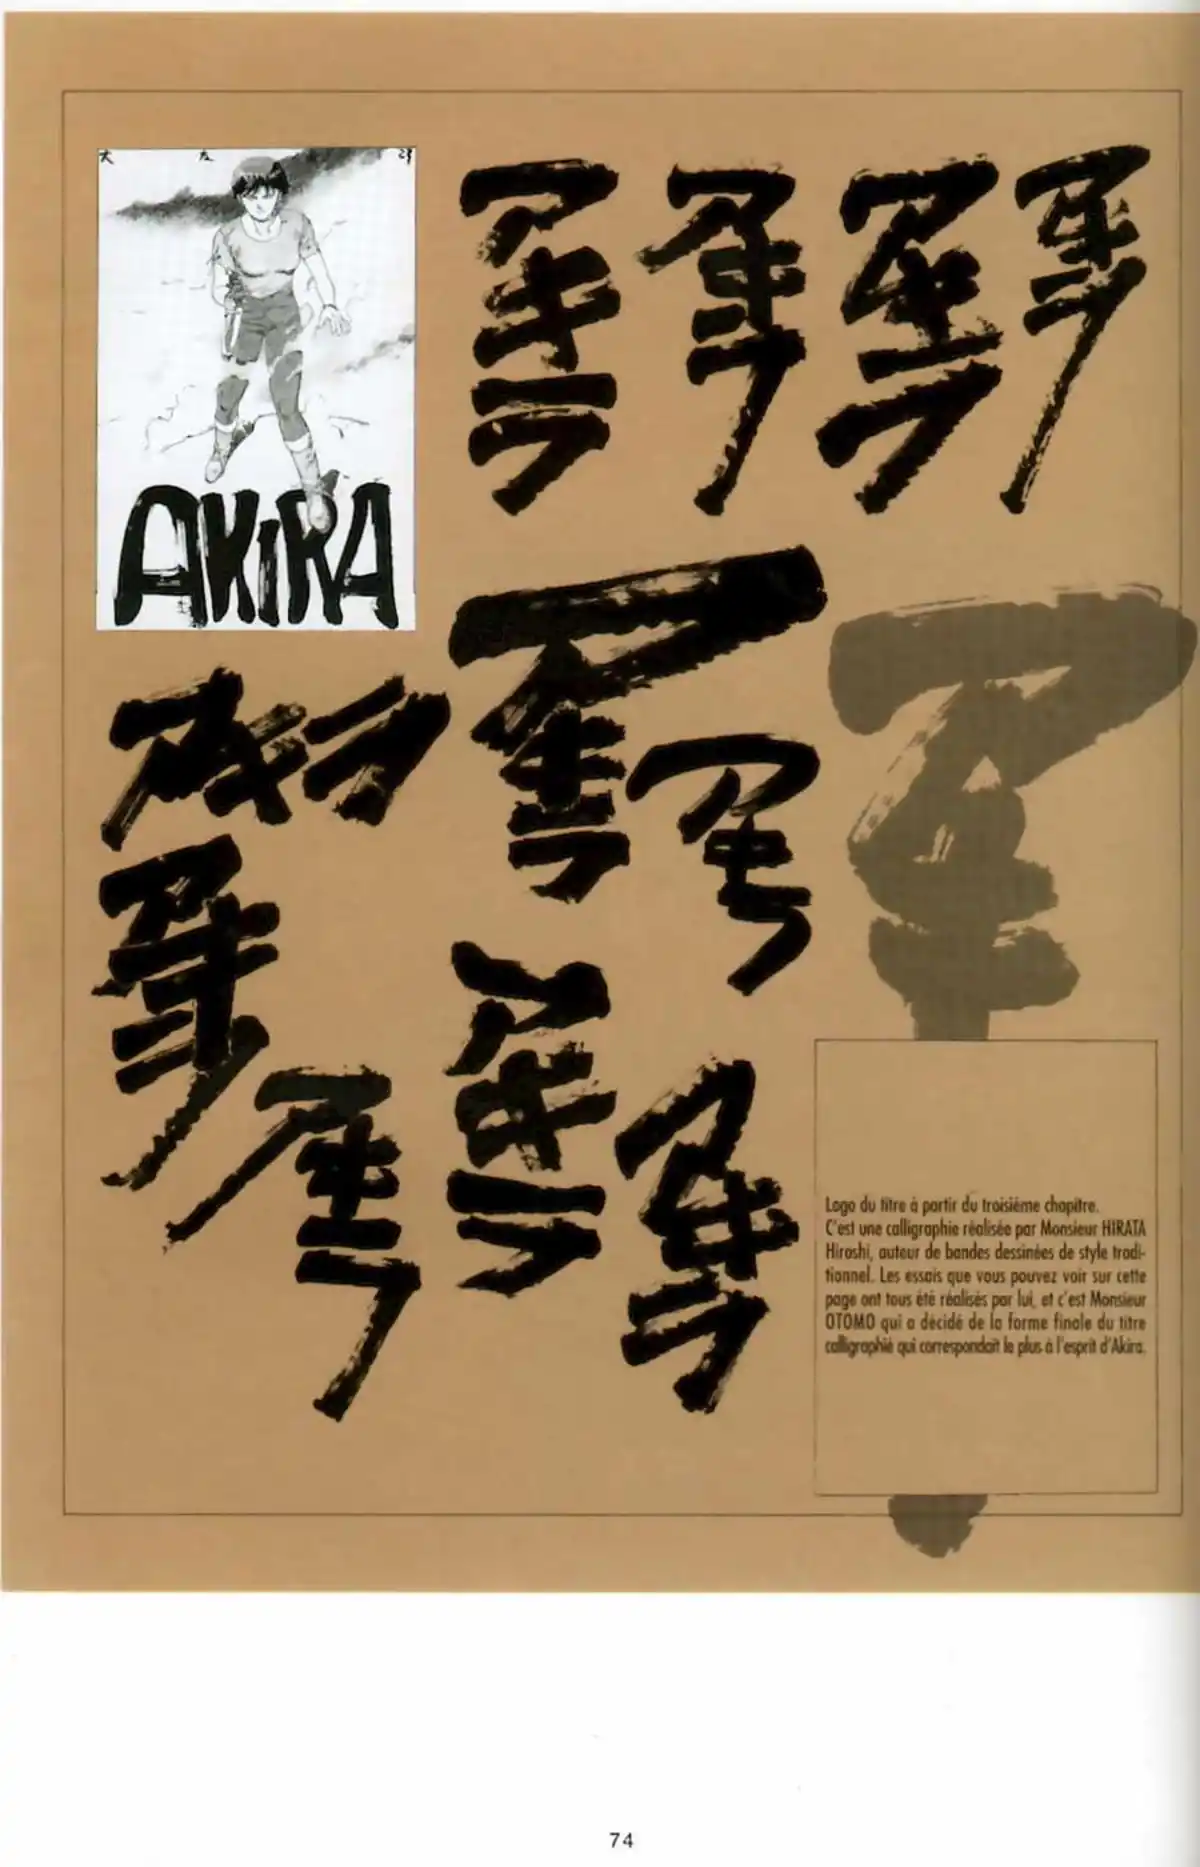 大 友
AKIRA
アキラ
アキラ
アキラ
アキラ
アキラ
アキラ
アキラ
アキラ
アキラ
アキラ
アキラ
アキラ
Logo du titre à partir du troisième chapitre.
C'est une calligraphie réalisée par Monsieur HIRATA
Hiroshi, auteur de bandes dessinées de style tradi-
tionnel. Les essais que vous pouvez voir sur cette
page ont tous été réalisés par lui, et c'est Monsieur
OTOMO qui a décidé de la forme finale du titre
calligraphié qui correspondait le plus à l'esprit d'Akira.
74